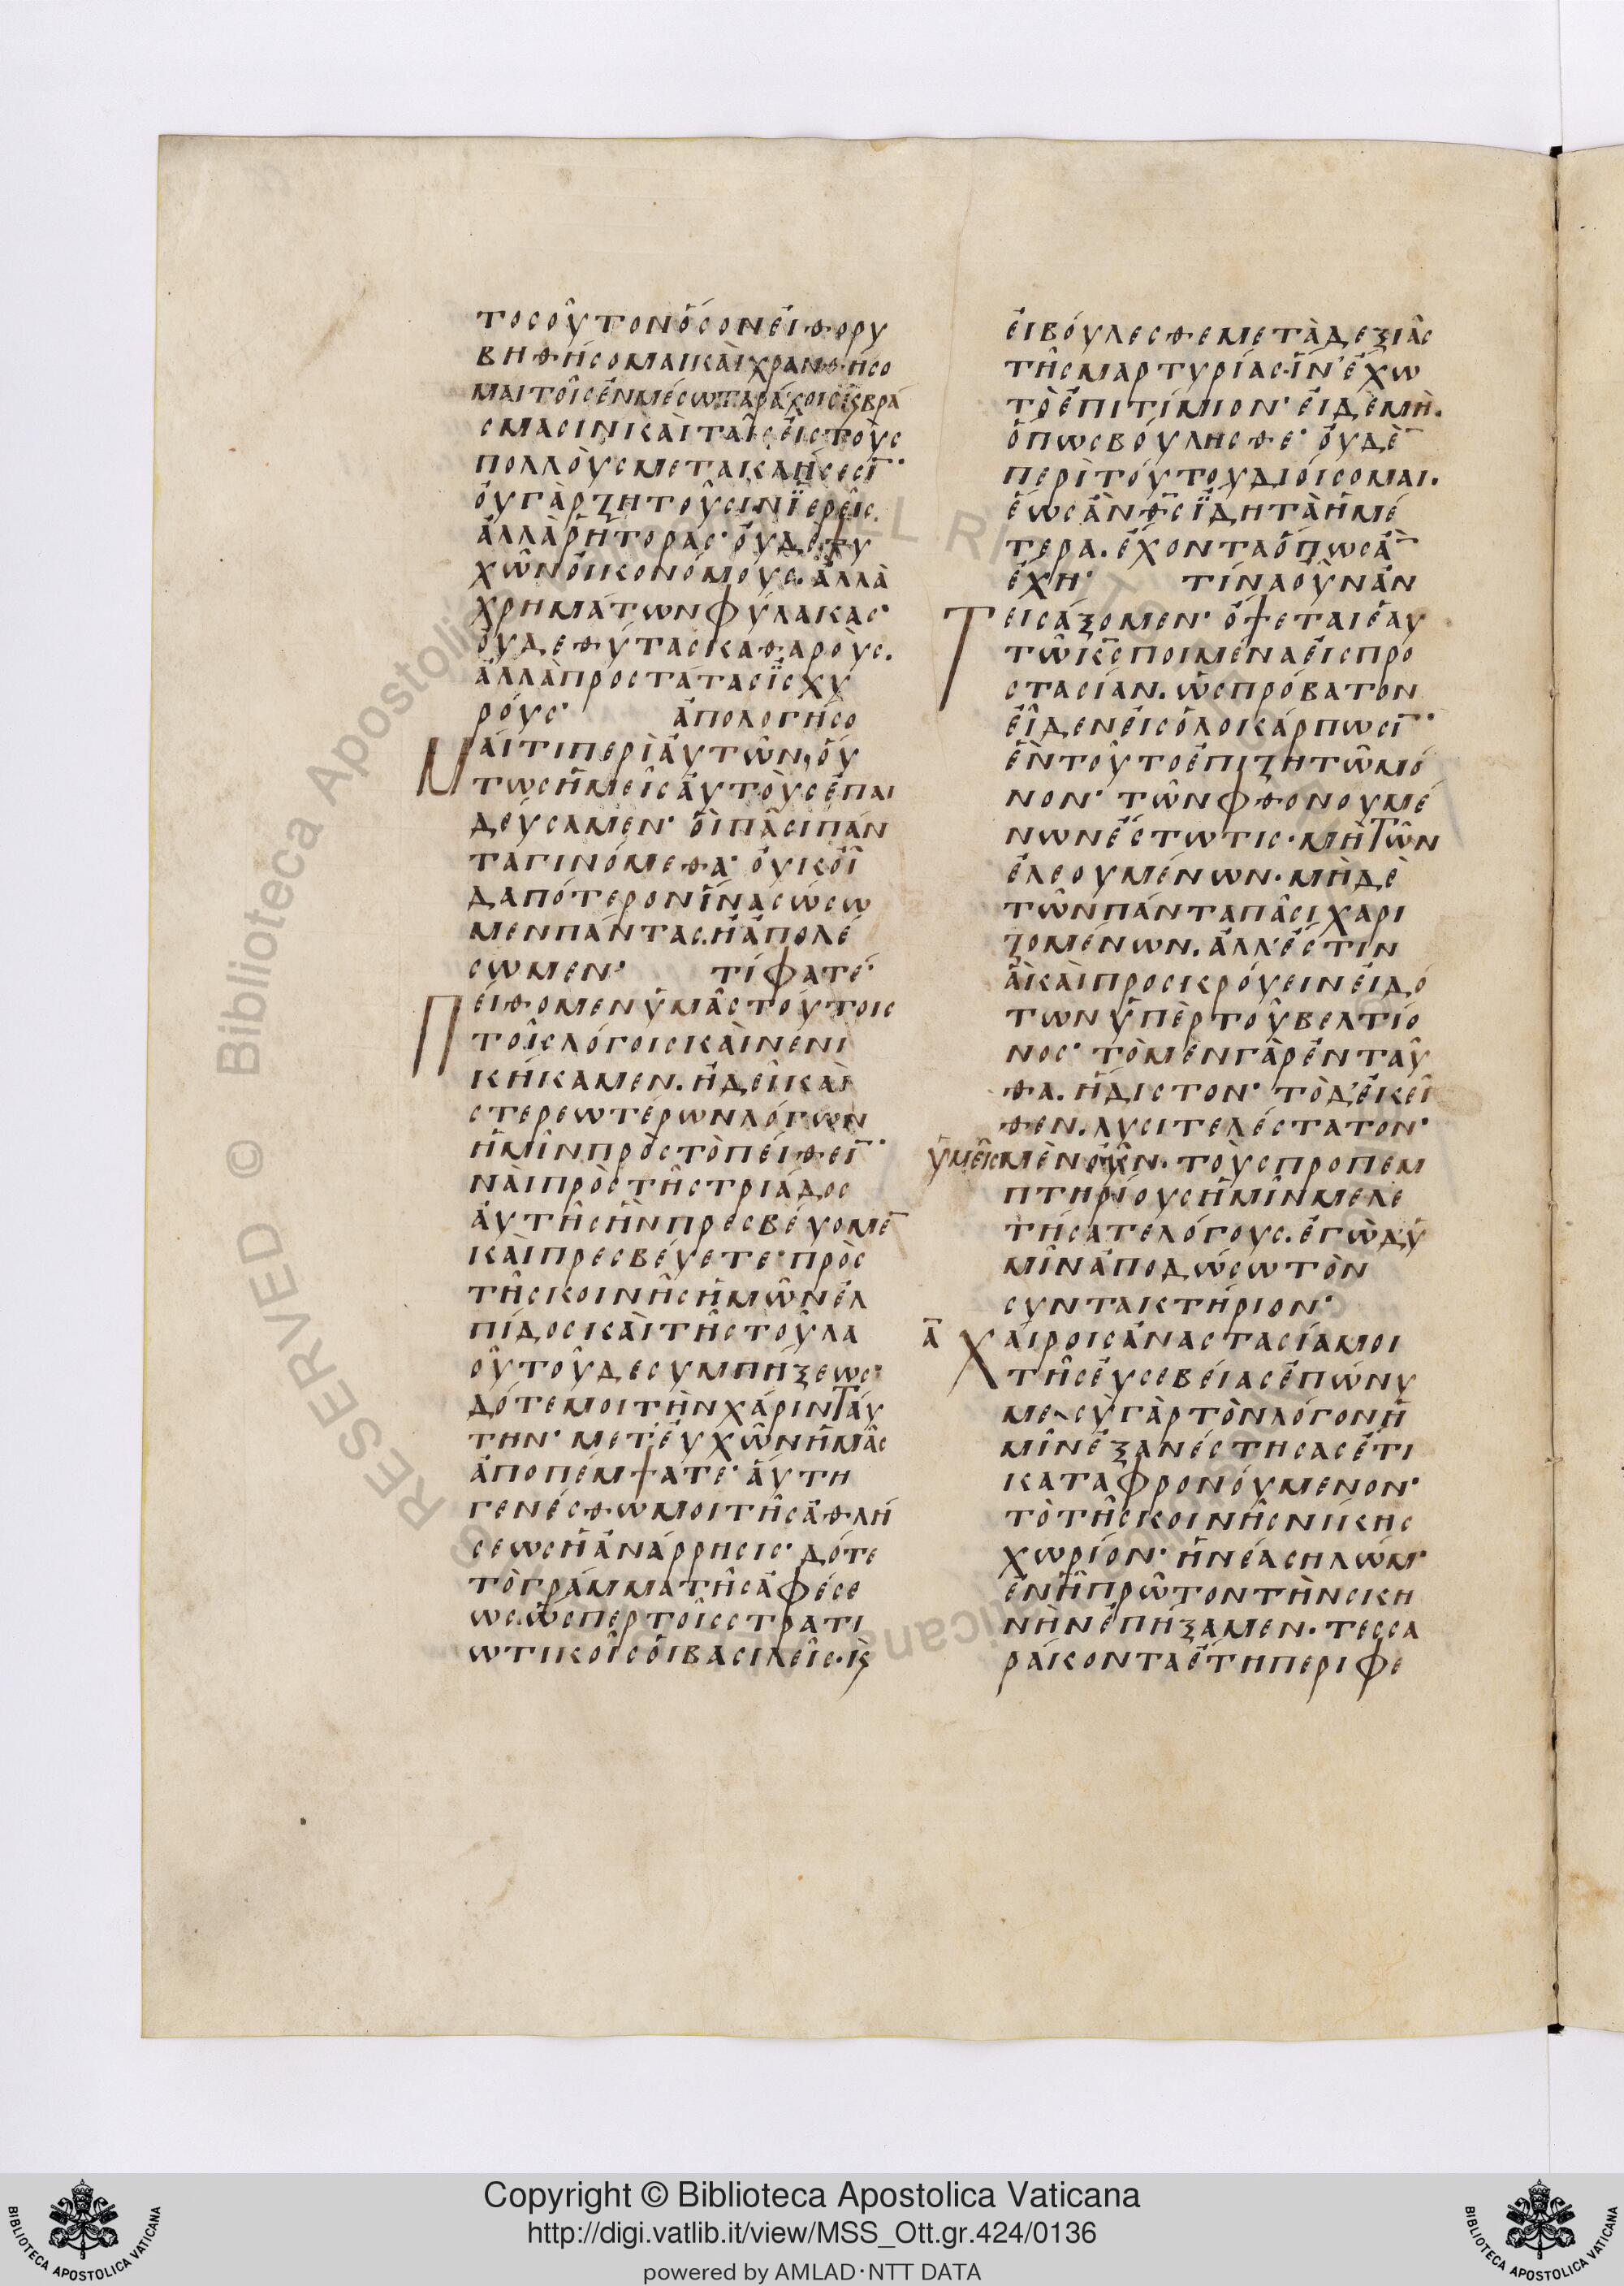 τοσοῦτον ὅσον εἰ θορυ
βηθήσομαι καὶ χρανθήσο
μαι τοῖς ἐν μέσω ταράχοις κ(αὶ) βρά
σμασιν καὶ ταῖς εἰς τοὺς
πολλοὺς μετακλήσεσῑ·
οὐ γὰρ ζητοῦσιν ἱερεῖς
ἀλλὰ ῥήτορας· οὐδὲ ψυ
χῶν οἰκονόμους. ἀλλὰ
χρημάτων φύλακας·
οὐδε θύτας καθαροὺς.
ἀλλὰ προστάτας ἰσχυ
ρούς· ἀπολογήσο
Μαί τι περὶ αὐτῶν, οὕ
τως ἡμεῖς αὐτοὺς ἐπαι
δεύσαμεν· οἳ πᾶσι πάν
τα γινόμεθα· οὐκ οἶ
δα πότερον ἵνα σώσω
μεν πάντας. ἢ ἀπολέ
σωμεν· τί φατέ·
Πείθομεν ὑμᾶς τούτοις
τοῖς λόγοις καὶ νενι
κήκαμεν. ἢ δεῖ καὶ
στερεωτέρων λόγων
ἡμῖν πρὸς τὸ πείθεῑ·
ναὶ πρὸς τῆς τριάδος
αὐτῆς ἣν πρεσβεύομε̄
καὶ πρεσβεύετε· πρὸς
τῆς κοινῆς ἡμῶν ἐλ
πίδος καὶ τῆς τοῦ λα
οῦ τοῦδε συμπήξεως·
δότε μοι τὴν χάριν ταύ
την· μετ' εὐχῶν ἡμᾶς
ἀποπέμψατε· αὕτη
γενέσθω μοι τῆς ἀθλή
σεως ἡ ἀνάρρησις· δότε
τὸ γράμμα τῆς ἀφέσε
ως. ὥσπερ τοῖς στρατι
ωτικοῖς οἱ βασιλεῖς· κ(αὶ)
εἰ βούλεσθε μετὰ δεξιᾶς
τῆς μαρτυρίας· ἵν' ἔχω
τὸ ἐπιτίμιον· εἰ δὲ μὴ.
ὅπως βούλησθε· οὐδὲ̄
περὶ τούτου διοίσομαι.
ἕως ἂν θ̄ς ἴδη τὰ ἡμέ
τερα. ἔχοντα ὅπως ἂ̄
ἔχη· τίνα οὖν ἂν
Τεισάξομεν· ὄψεται ἑαυ
τῶ κ̄ς ποιμένα εἰς προ
στασίαν. ὡς πρόβατον
εἶδεν εἰς ὁλοκάρπωσῑ·
ἓν τοῦτο ἐπιζητῶ μό
νον· τῶν φθονουμέ
νων ἔστω τις· μὴ τῶν
ἐλεουμένων· μὴδὲ
τῶν πάντα πᾶσι χαρι
ζομένων. ἀλλ' ἔστιν
ἃ καὶ προσκρούειν εἰδό
των ὑπὲρ τοῦ βελτίο
νος· τὸ μὲν γὰρ ἐνταῦ
θα. ἥδιστον· τὸ δ' ἐκεῖ
θεν. λυσιτελέστατον·
ὑμεῖς μὲν οὖν· τοὺς προπεμ
πτηρίους ἡμῖν μελε
τήσατε λόγους. ἐγὼ δ' ὑ
μῖν ἀποδώσω τὸν
συντακτήριον·
ᾱ Χαίροις ἀναστασία μοι
τῆς εὐσεβείας ἐπώνυ
με· σὺ γὰρ τὸν λόγον ἡ
μῖν ἐξανέστησας ἔτι
καταφρονούμενον·
τὸ τῆς κοινῆς νίκης
χωρίον· ἡ νέα σηλώμ·
ἐν ἧ πρῶτον τὴν σκη
νὴν ἐπήξαμεν· τεσσα
ράκοντα ἔτη περιφε
Copyright © Biblioteca Apostolica Vaticana
http://digi.vatlib.it/view/MSS_Ott.gr.424/0136
powered by AMLAD·NTT DATA